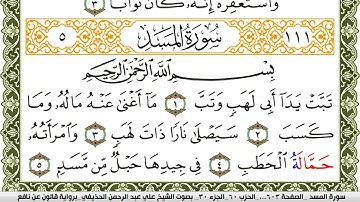 وَاسْتَغْفِرْهُ إِنَّهُ كَانَ تَوَّابًا ٣
٥ سُورَةُ الْمَسَدِ ١١١
بِسْمِ اللَّهِ الرَّحْمَٰنِ الرَّحِيمِ
تَبَّتْ يَدَا أَبِي لَهَبٍ وَتَبَّ ١ مَا أَغْنَىٰ عَنْهُ مَالُهُ وَمَا
كَسَبَ ٢ سَيَصْلَىٰ نَارًا ذَاتَ لَهَبٍ ٣ وَامْرَأَتُهُ
حَمَّالَةُ الْحَطَبِ ٤ فِي جِيدِهَا حَبْلٌ مِنْ مَسَدٍ ٥
سورة المسد _الصفحة ٦٠٣... _الحزب ٦٠_ الجزء ٣٠_ بصوت الشيخ علي عبد الرحمن الحذيفي_ برواية قالون عن نافع